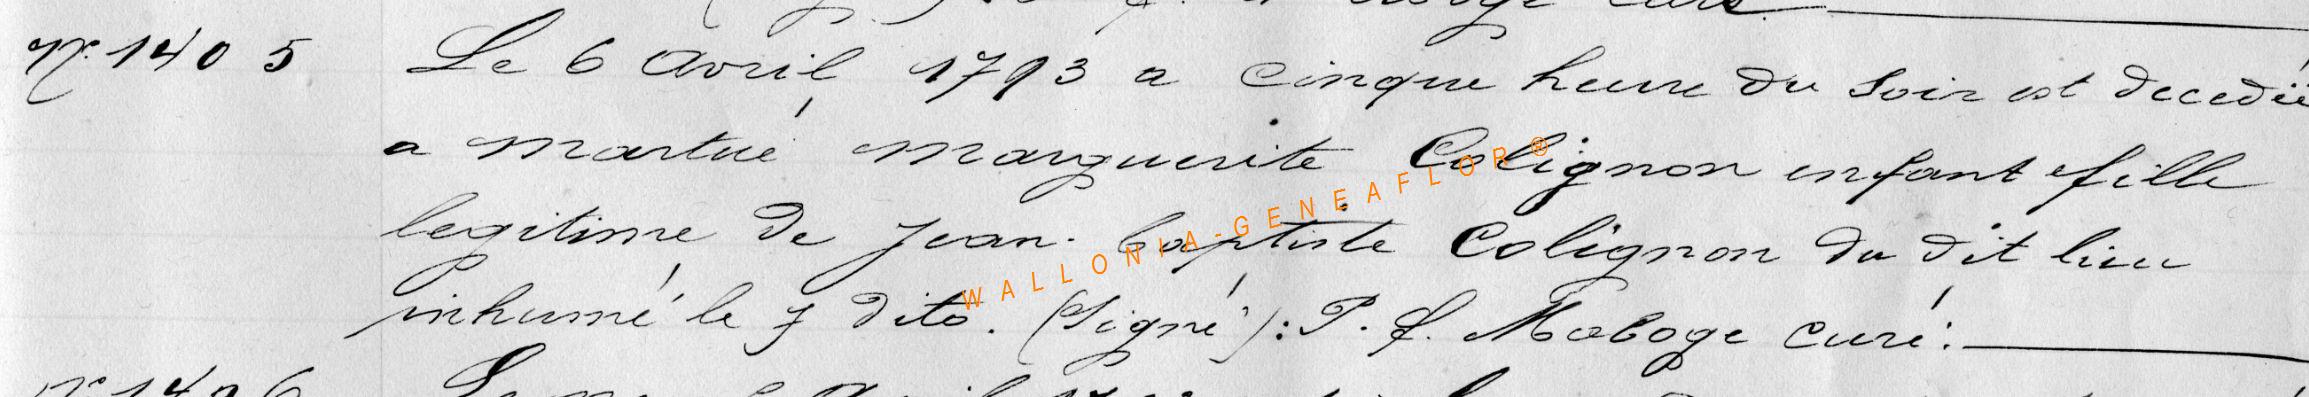 curé
N° 1405 Le 6 avril 1793 a cinque heure du soir est decedée
a martué marguerite Colignon enfant fille
legitime de Jean-baptiste Colignon du dit lieu
inhumé le 7 dito. (Signé): P. L. Maboge curé:
WALLONIA-GENEAFLOR®
N° 1406